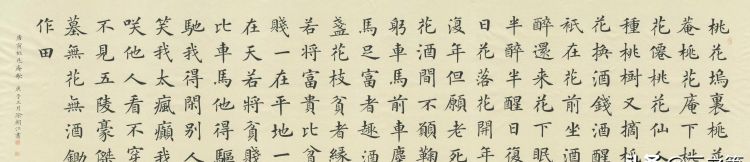 桃花塢裏桃花
菴桃花菴下桃
花僊桃花仙人
種桃樹又摘桃
花換酒錢酒醒
祇在花前坐酒
醉還來花下眠
半醉半醒日復
日花落花開年
復年但願老死
花酒間不願鞠
躬車馬前車塵
馬足富者趣酒
盞花枝貧者緣
若將富貴比貧
賤一在平地一
在天若將貧賤
比車馬他得驅
馳我得閑別人
笑我太瘋癲我
咲他人看不穿
不見五陵豪傑
墓無花無酒鋤
作田
唐寅桃花庵歌